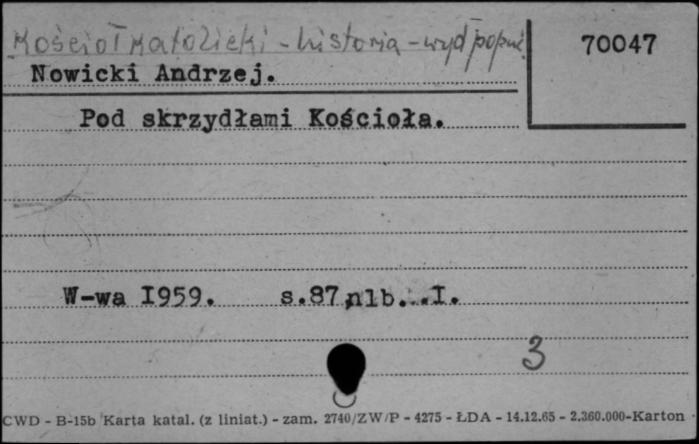 Kościół Katolicki - historia - wyd popul.
70047
Nowicki Andrzej.
Pod skrzydłami Kościoła.
W-wa I959. s.87,nlb...I.
3
CWD - B-15b Karta katal. (z liniat.) - zam. 2740/ZW/P - 4275 - ŁDA - 14.12.65 - 2.360.000-Karton